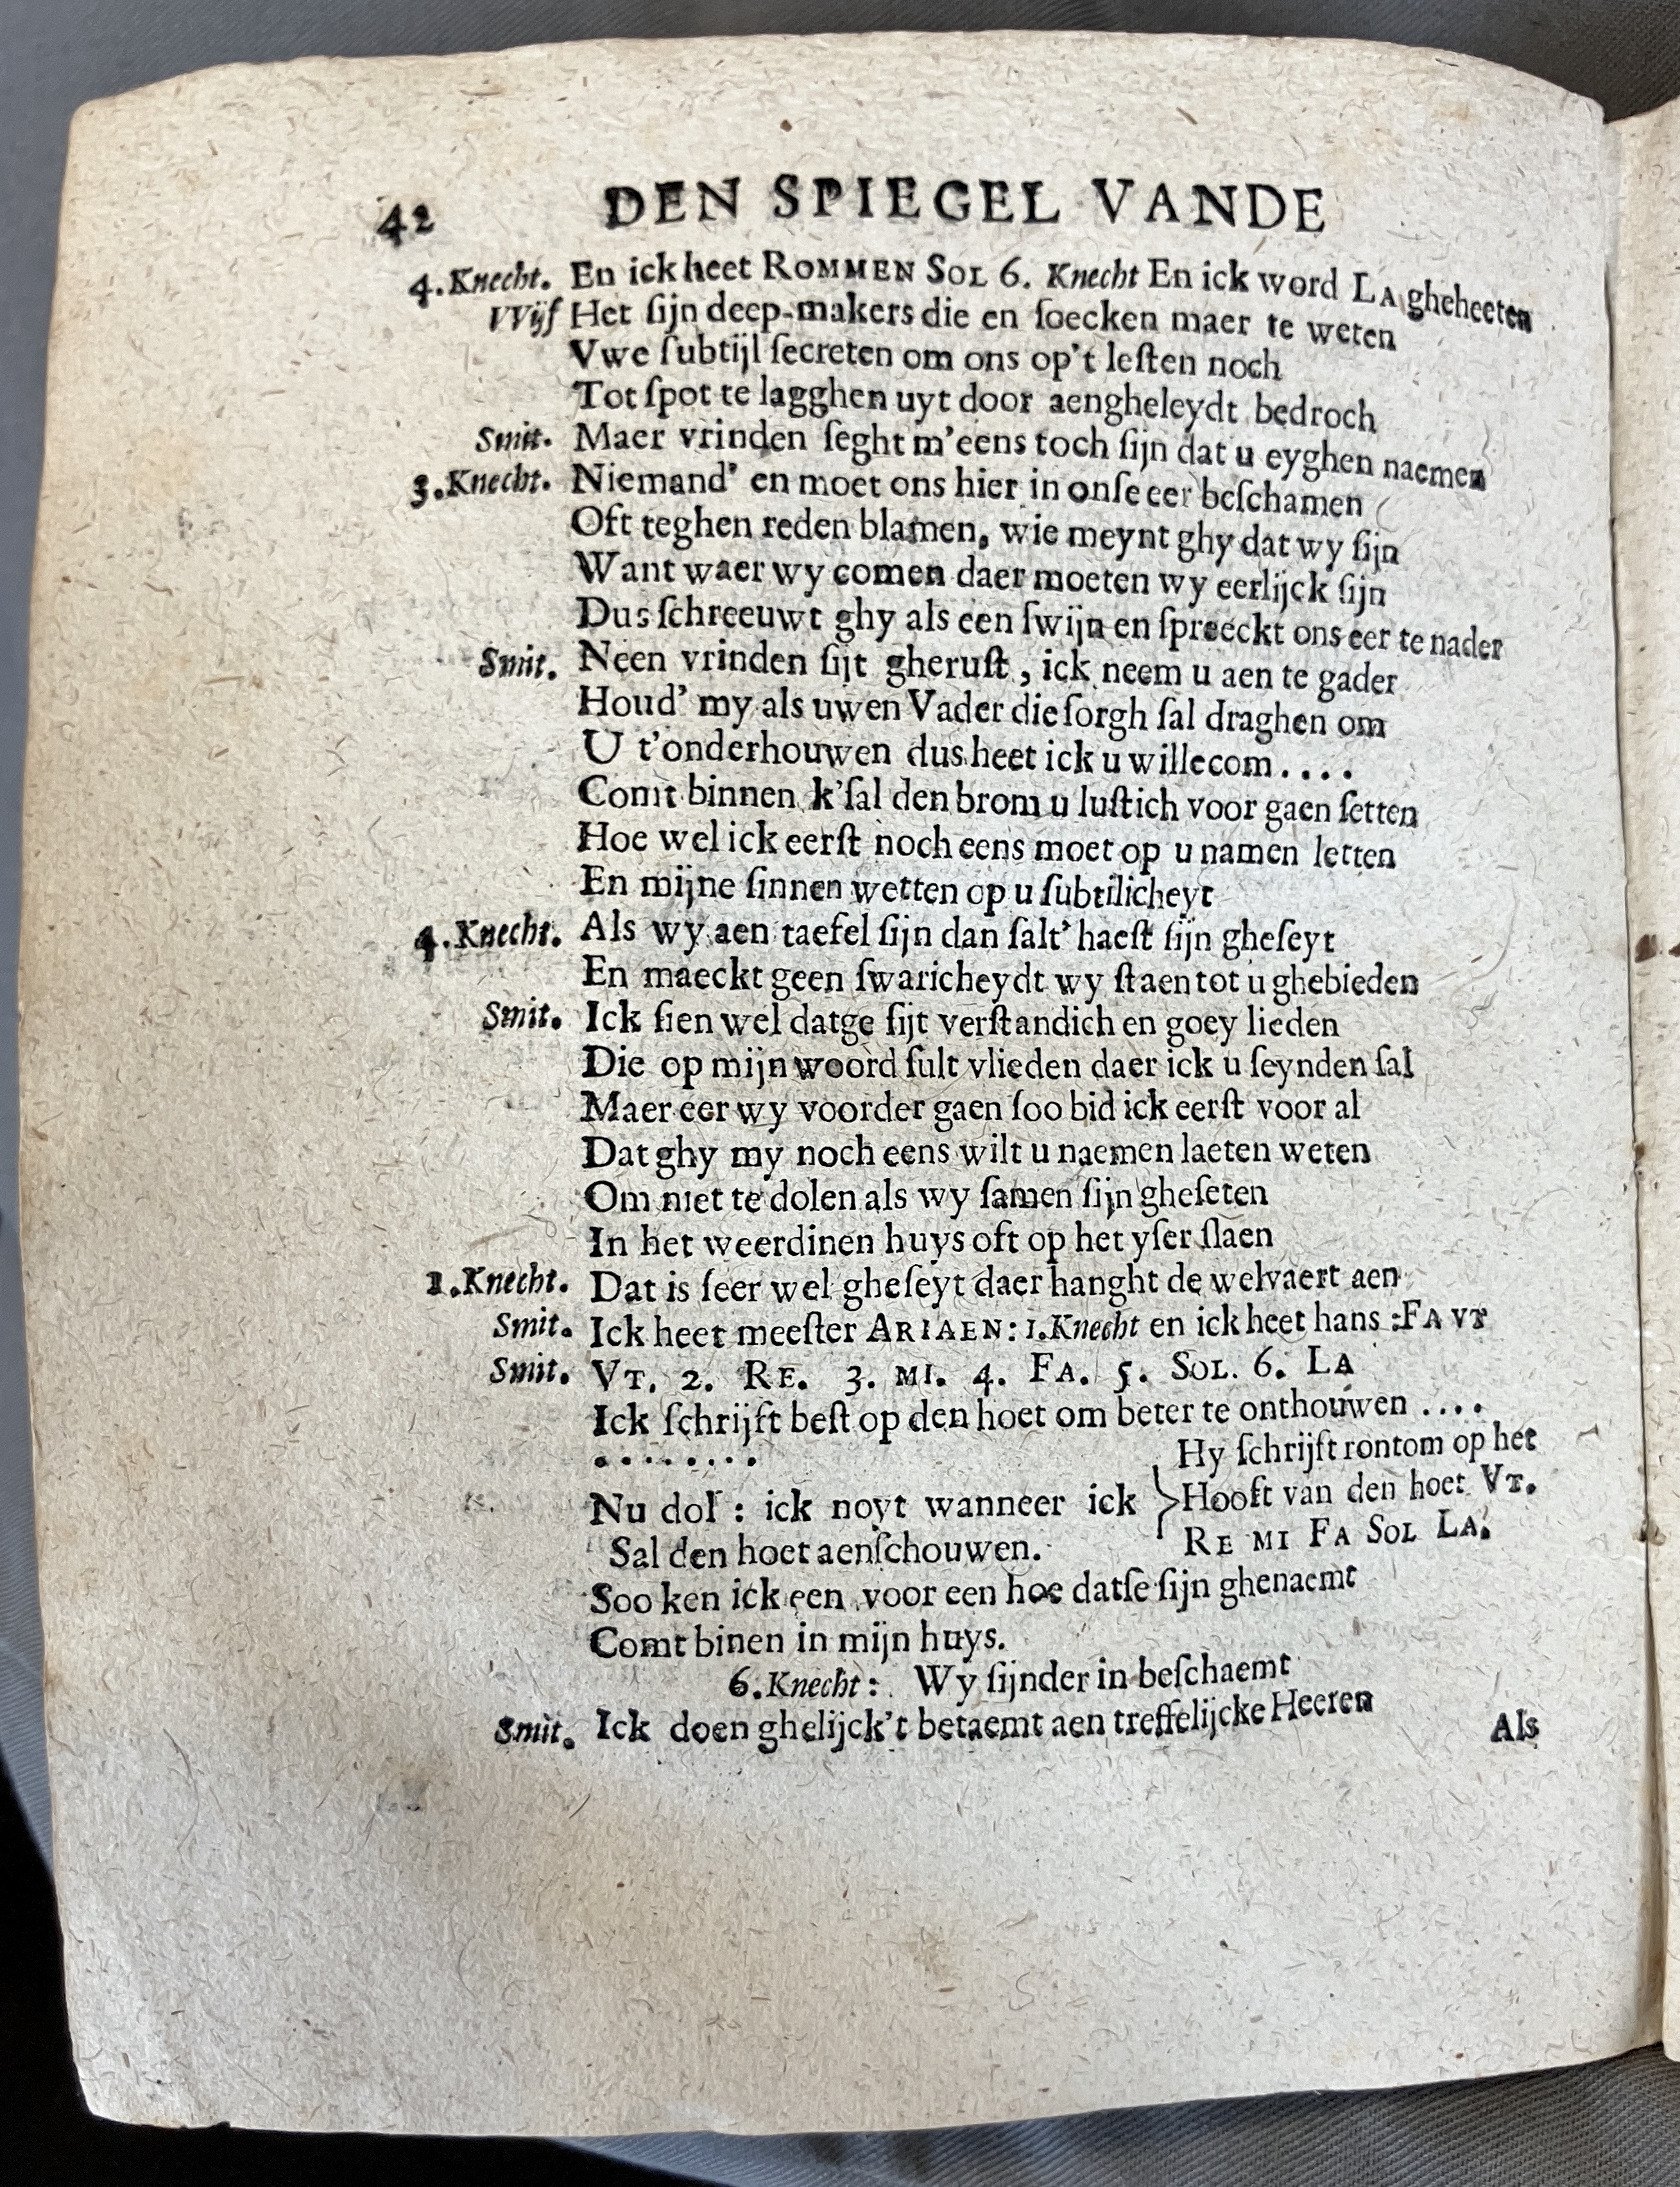 42 DEN SPIEGEL VANDE
4.Knecht. En ick heet ROMMEN SOL 6. Knecht En ick word LA gheheeten
VVijf Het ſijn deep-makers die en ſoecken maer te weten
Vwe ſubtijl ſecreten om ons op't leſten noch
Tot ſpot te lagghen uyt door aengheleydt bedroch
Smit. Maer vrinden ſeght m'eens toch ſijn dat u eyghen naemen
3.Knecht. Niemand' en moet ons hier in onſe eer beſchamen
Oft teghen reden blamen, wie meynt ghy dat wy ſijn
Want waer wy comen daer moeten wy eerlijck ſijn
Dus ſchreeuwt ghy als een ſwijn en ſpreeckt ons eer te nader
Smit. Neen vrinden ſijt gheruſt, ick neem u aen te gader
Houd' my als uwen Vader die ſorgh ſal draghen om
U t'onderhouwen dus heet ick u willecom....
Comt binnen k'ſal den brom u luſtich voor gaen ſetten
Hoe wel ick eerſt noch eens moet op u namen letten
En mijne ſinnen wetten op u ſubtilicheyt
4.Knecht. Als wy aen taefel ſijn dan ſalt' haeſt ſijn gheſeyt
En maeckt geen ſwaricheydt wy ſtaen tot u ghebieden
Smit. Ick ſien wel datge ſijt verſtandich en goey lieden
Die op mijn woord ſult vlieden daer ick u ſeynden ſal
Maer eer wy voorder gaen ſoo bid ick eerſt voor al
Dat ghy my noch eens wilt u naemen laeten weten
Om niet te dolen als wy ſamen ſijn gheſeten
In het weerdinen huys oft op het yſer ſlaen
1.Knecht. Dat is ſeer wel gheſeyt daer hanght de welvaert aen
Smit. Ick heet meeſter ARIAEN: 1.Knecht en ick heet hans :FA VT
Smit. VT. 2. RE. 3. MI. 4. FA. 5. SOL. 6. LA
Ick ſchrijft beſt op den hoet om beter te onthouwen ....
........ Hy ſchrijft rontom op het
Nu dol : ick noyt wanneer ick Hooft van den hoet VT.
Sal den hoet aenſchouwen. RE MI FA SOL LA.
Soo ken ick een voor een hoe datſe ſijn ghenaemt
Comt binen in mijn huys.
6.Knecht: Wy ſijnder in beſchaemt
Smit. Ick doen ghelijck't betaemt aen treffelijcke Heeren
Als